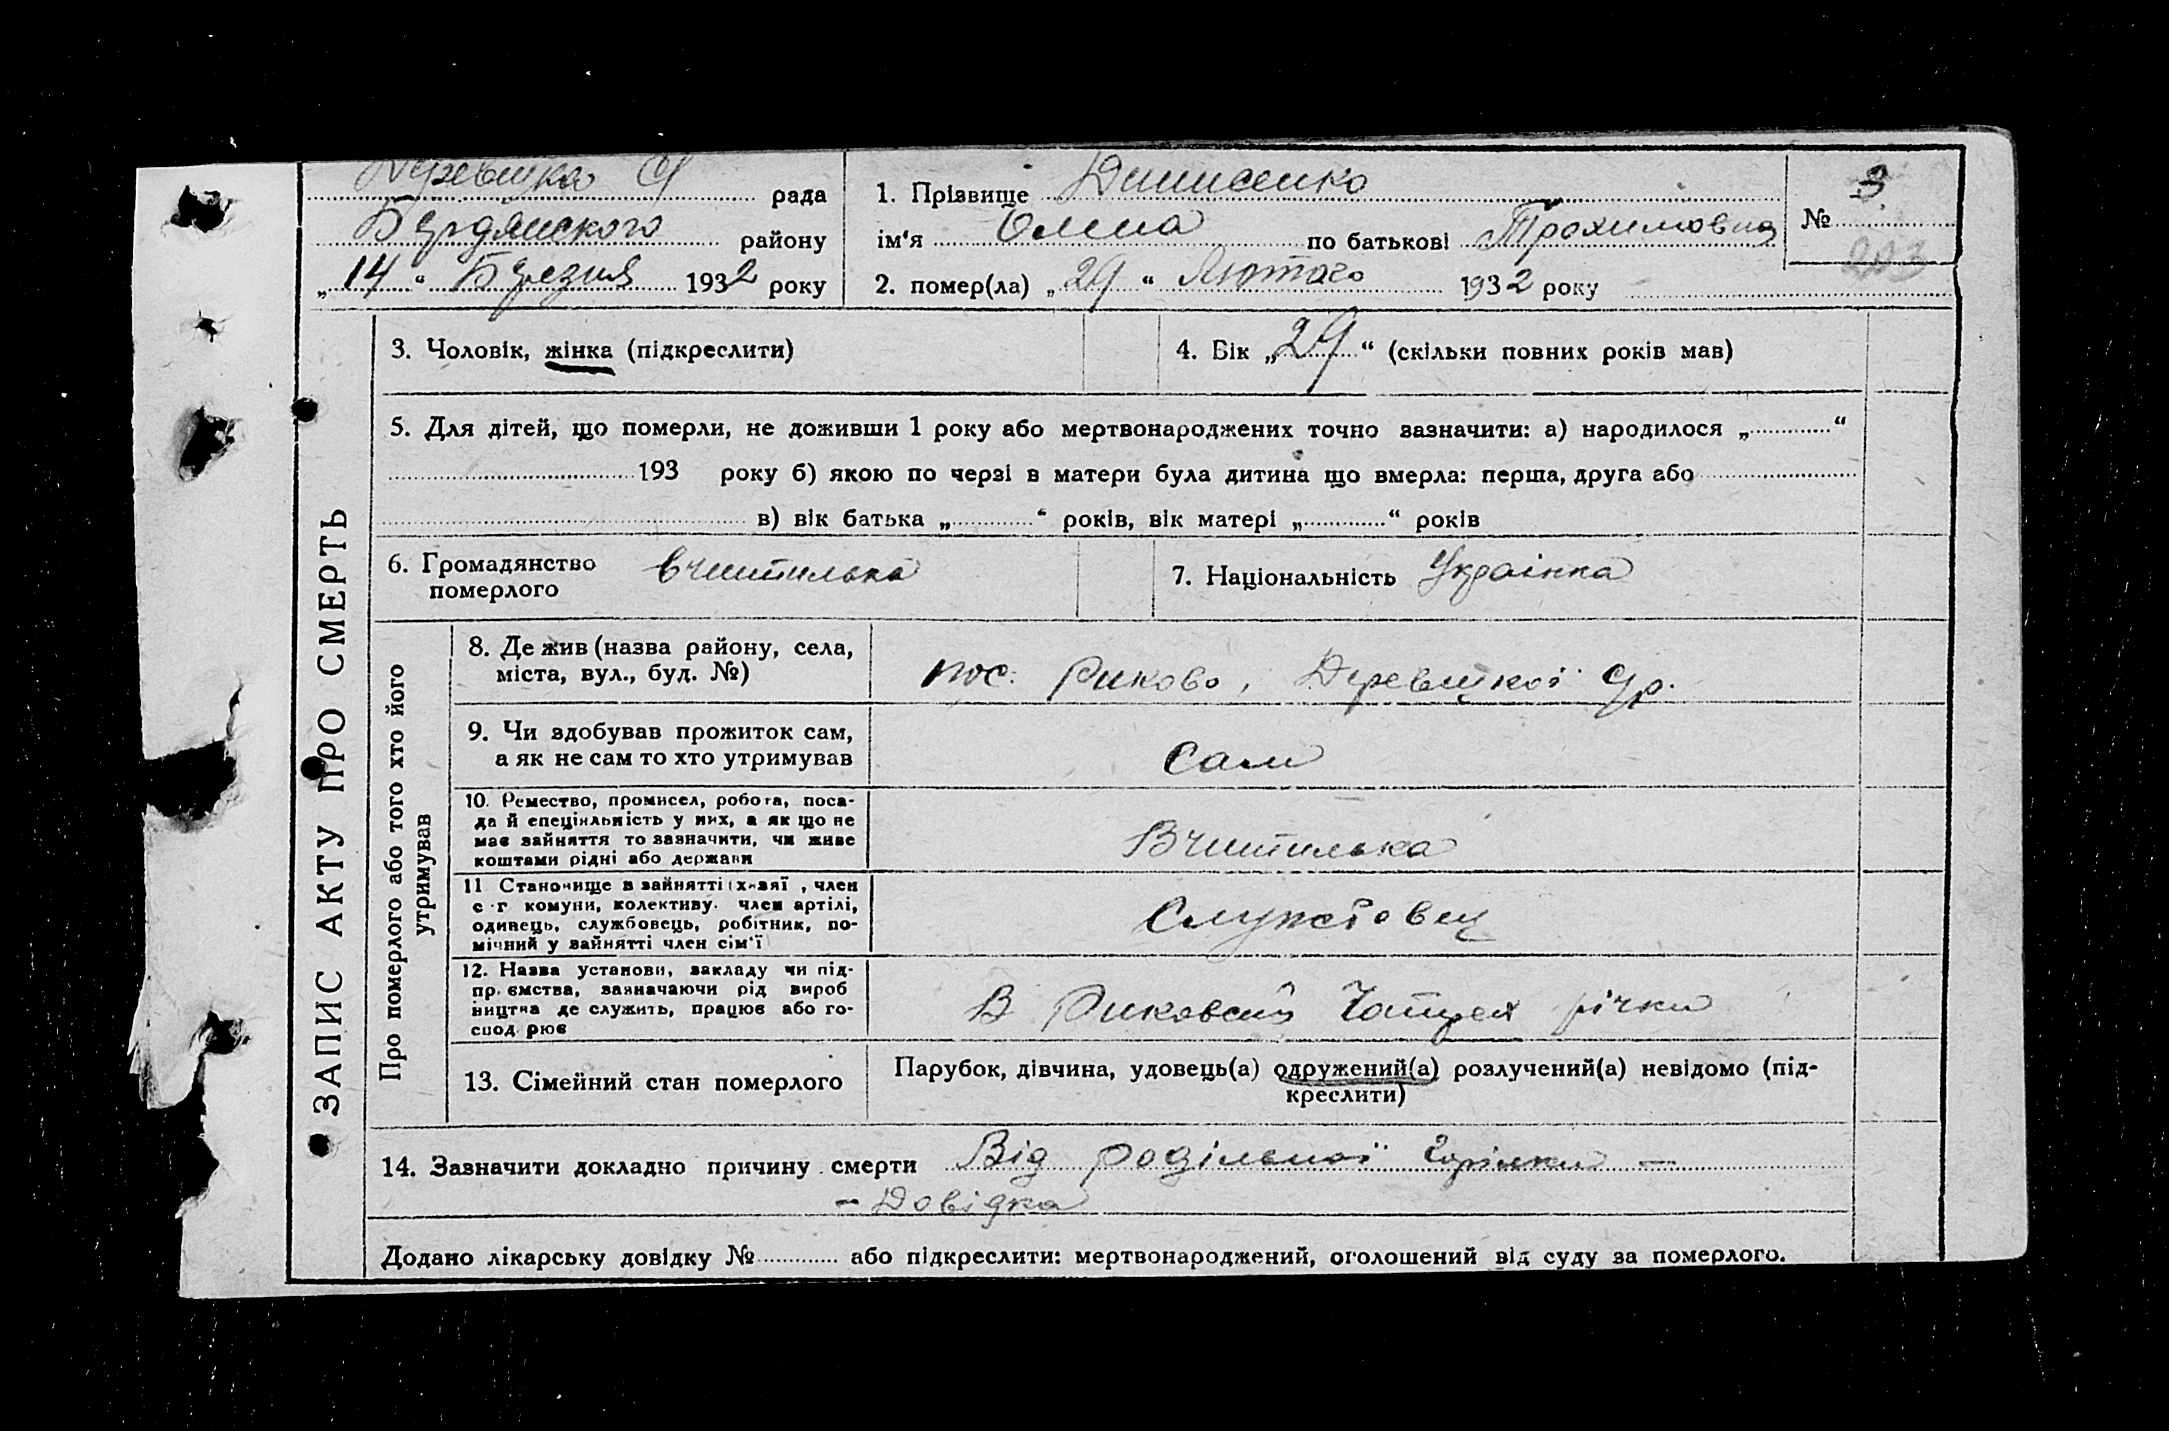 Деревецка С/ рада
Бердянського району
„14“ Березня 1932 року
1. Прізвище Динисенко
ім‘я Олена по батькові Трохимовна
2. помер(ла) „29“ Лютого 1932 року
№ 3
203
ЗАПИС АКТУ ПРО СМЕРТЬ
3. Чоловік, жінка (підкреслити)
4. Вік „29“ (скільки повних років мав)
5. Для дітей, що померли, не доживши 1 року або мертвонароджених точно зазначити: а) народилося „ “
193 року б) якою по черзі в матери була дитина що вмерла: перша, друга або
в) вік батька „ “ років, вік матері „ “ років
6. Громадянство
померлого
вчитилька
7. Національність Українка
Про померлого або того хто його
утримував
8. Де жив (назва району, села,
міста, вул., буд. №)
пос. Риково, Деревецкої С/р.
9. Чи здобував прожиток сам,
а як не сам то хто утримував
Сам
10. Ремество, промисел, робота, поса-
да й спеціяльність у них, а як що не
має зайняття то зазначити, чи живе
коштами рідні або держави
Вчитилька
11 Становище в зайнятті (хазяї , член
с-г комуни, колективу. член артілі,
одинець, службовець, робітник, по-
мічний у зайнятті член сім'ї
Службовец
12. Назва установи, закладу чи під-
приємства, зазначаючи рід вироб
ництва де служить, працює або го-
спод рює
В Риковский
13. Сімейний стан померлого
Парубок, дівчина, удовець(а) одружений(а) розлучений(а) невідомо (під-
креслити)
14. Зазначити докладно причину смерти Від родільної горячки —
– Довідка
Додано лікарську довідку № або підкреслити: мертвонароджений, оголошений від суду за померлого.